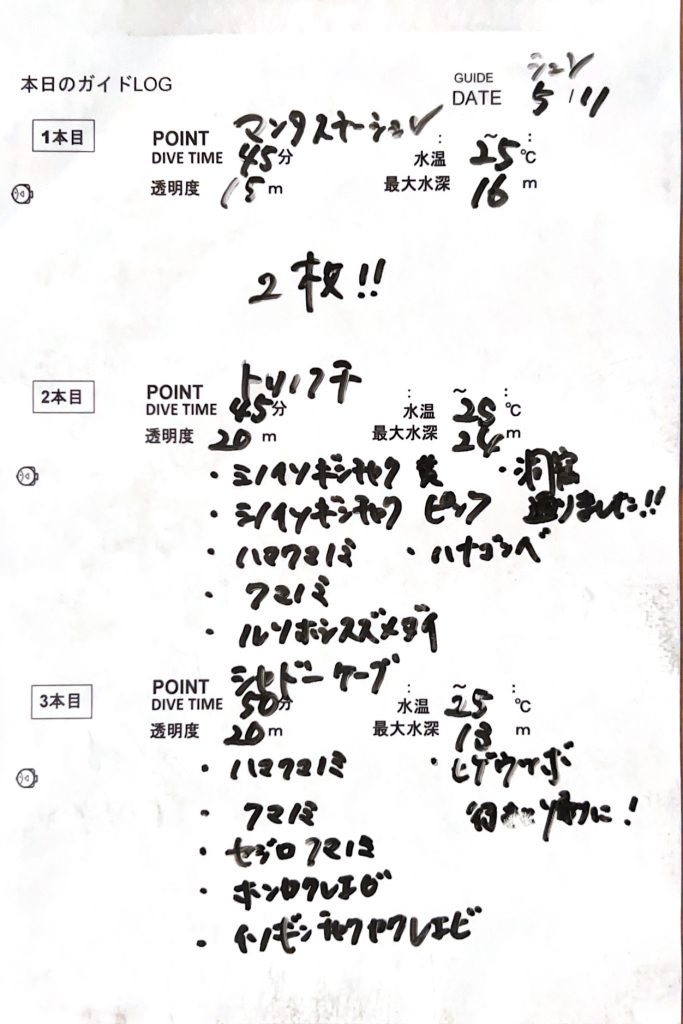 本日のガイドLOG
GUIDE シュン
DATE 5/11
1本目
POINT マンタステーション
DIVE TIME 45分 : ~ :
水温 25℃
透明度 15m 最大水深 16m
2枚!!
2本目
POINT トリノフチ
DIVE TIME 45分 : ~ :
水温 25℃
透明度 20m 最大水深 24m
・ミノイソギンチャク 黄 ・洞窟
・ミノイソギンチャク ピンク 通りました!!
・ハマクマノミ ・ハナゴンベ
・クマノミ
・ルリホシスズメダイ
3本目
POINT シャドーケーブ
DIVE TIME 50分 : ~ :
水温 25℃
透明度 20m 最大水深 13m
・ハマクマノミ ・ヒゲウツボ
・クマノミ
・セジロクマノミ
・ホンカクレエビ
・イソギンチャクカクレエビ